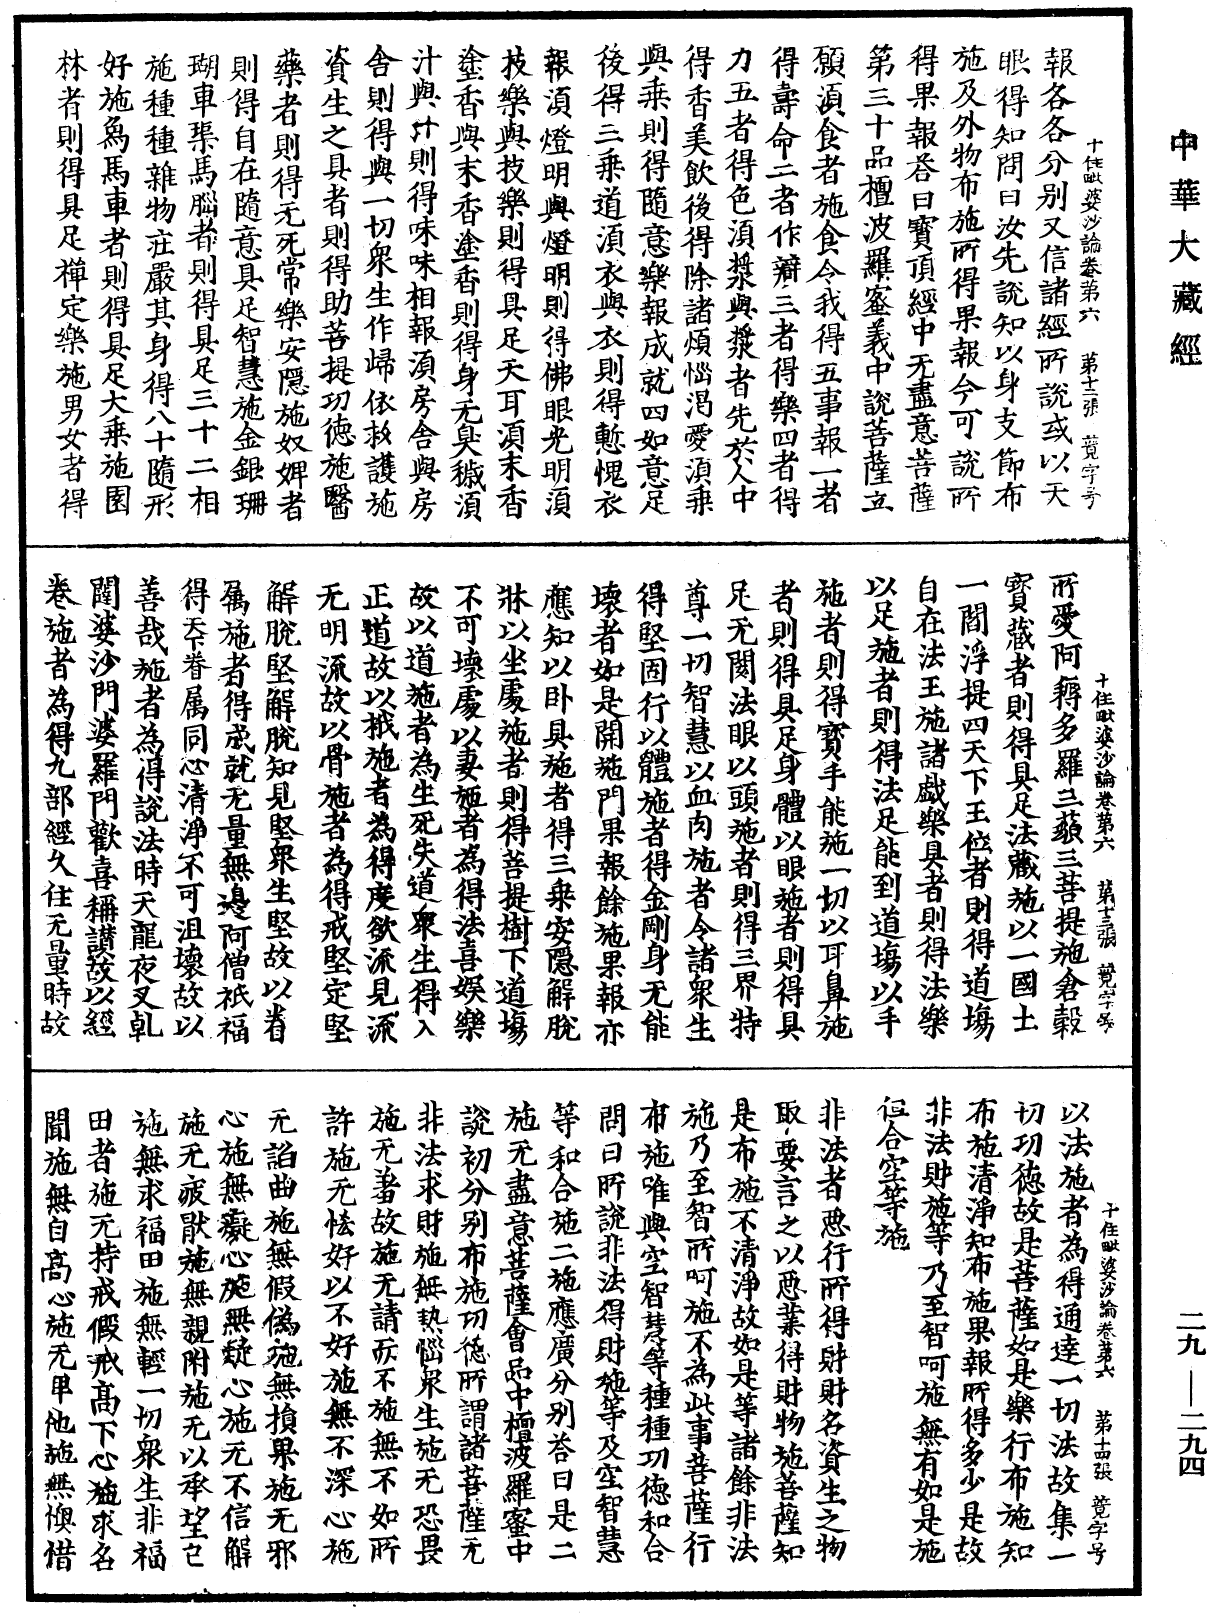 中華大藏經
十住毗婆沙論卷第六 第十二張 競字号
報各各分別又信諸經所說或以天
眼得知問曰汝先說知以身支節布
施及外物布施所得果報今可說所
得果報荅曰寶頂經中无盡意菩薩
第三十品檀波羅蜜義中說菩薩立
願湏食者施食令我得五事報一者
得壽命二者作辯三者得樂四者得
力五者得色湏漿與漿者先於人中
得香美飲後得除諸煩惱渴愛湏乗
與乗則得隨意樂報成就四如意足
後得三乗道湏衣與衣則得慙愧衣
報湏燈明與燈明則得佛眼光明湏
技樂與技樂則得具足天耳湏末香
塗香與末香塗香則得身无臭穢湏
汁與汁則得味味相報湏房舍與房
舍則得與一切衆生作歸依救護施
資生之具者則得助菩提功德施醫
藥者則得无死常樂安隱施奴婢者
則得自在隨意具足智慧施金銀珊
瑚車渠馬腦者則得具足三十二相
施種種雜物莊嚴其身得八十隨形
好施象馬車者則得具足大乗施園
林者則得具足禪定樂施男女者得
十住毗婆沙論卷第六 第十三張 競字号
所愛阿耨多羅三藐三菩提施倉穀
寶藏者則得具足法藏施以一國土
一閻浮提四天下王位者則得道場
自在法王施諸戲樂具者則得法樂
以足施者則得法足能到道場以手
施者則得寶手能施一切以耳鼻施
者則得具足身體以眼施者則得具
足无閡法眼以頭施者則得三界特
尊一切智慧以血肉施者令諸衆生
得堅固行以體施者得金剛身无能
壞者如是開施門果報餘施果報亦
應知以卧具施者得三乗安隱解脫
牀以坐處施者則得菩提樹下道場
不可壞處以妻施者為得法喜娛樂
故以道施者為生死失道衆生得入
正道故以栰施者為得度欲流見流
无明流故以骨施者為得戒堅定堅
解脫堅解脫知見堅衆生堅故以眷
屬施者得成就无量無邊阿僧祇福
得天下眷属同心清淨不可沮壞故以
善哉施者為得說法時天龍夜叉乹
闥婆沙門婆羅門歡喜稱讃故以經
卷施者為得九部經久住无量時故
十住毗婆沙論卷第六 第十四張 競字号
以法施者為得通達一切法故集一
切功德故是菩薩如是樂行布施知
布施清淨知布施果報所得多少是故
非法財施等乃至智呵施無有如是施
但合空等施
非法者惡行所得財財名資生之物
取要言之以惡業得財物施菩薩知
是布施不清淨故如是等諸餘非法
施乃至智所呵施不為此事菩薩行
布施唯與空智慧等種種功德和合
問曰所說非法得財施等及空智慧
等和合施二施應廣分別荅曰是二
施无盡意菩薩會品中檀波羅蜜中
說初分別布施功德所謂諸菩薩无
非法求財施無熱惱衆生施无恐畏
施无著故施无請而不施無不如所
許施无恡好以不好施無不深心施
无諂曲施無假偽施無損果施无邪
心施無癡心施無疑心施无不信解
施无疲猒施無親附施无以承望它
施無求福田施無輕一切衆生非福
田者施无持戒假戒髙下心施求名
聞施無自髙心施无卑他施無懊惜
二九—二九四